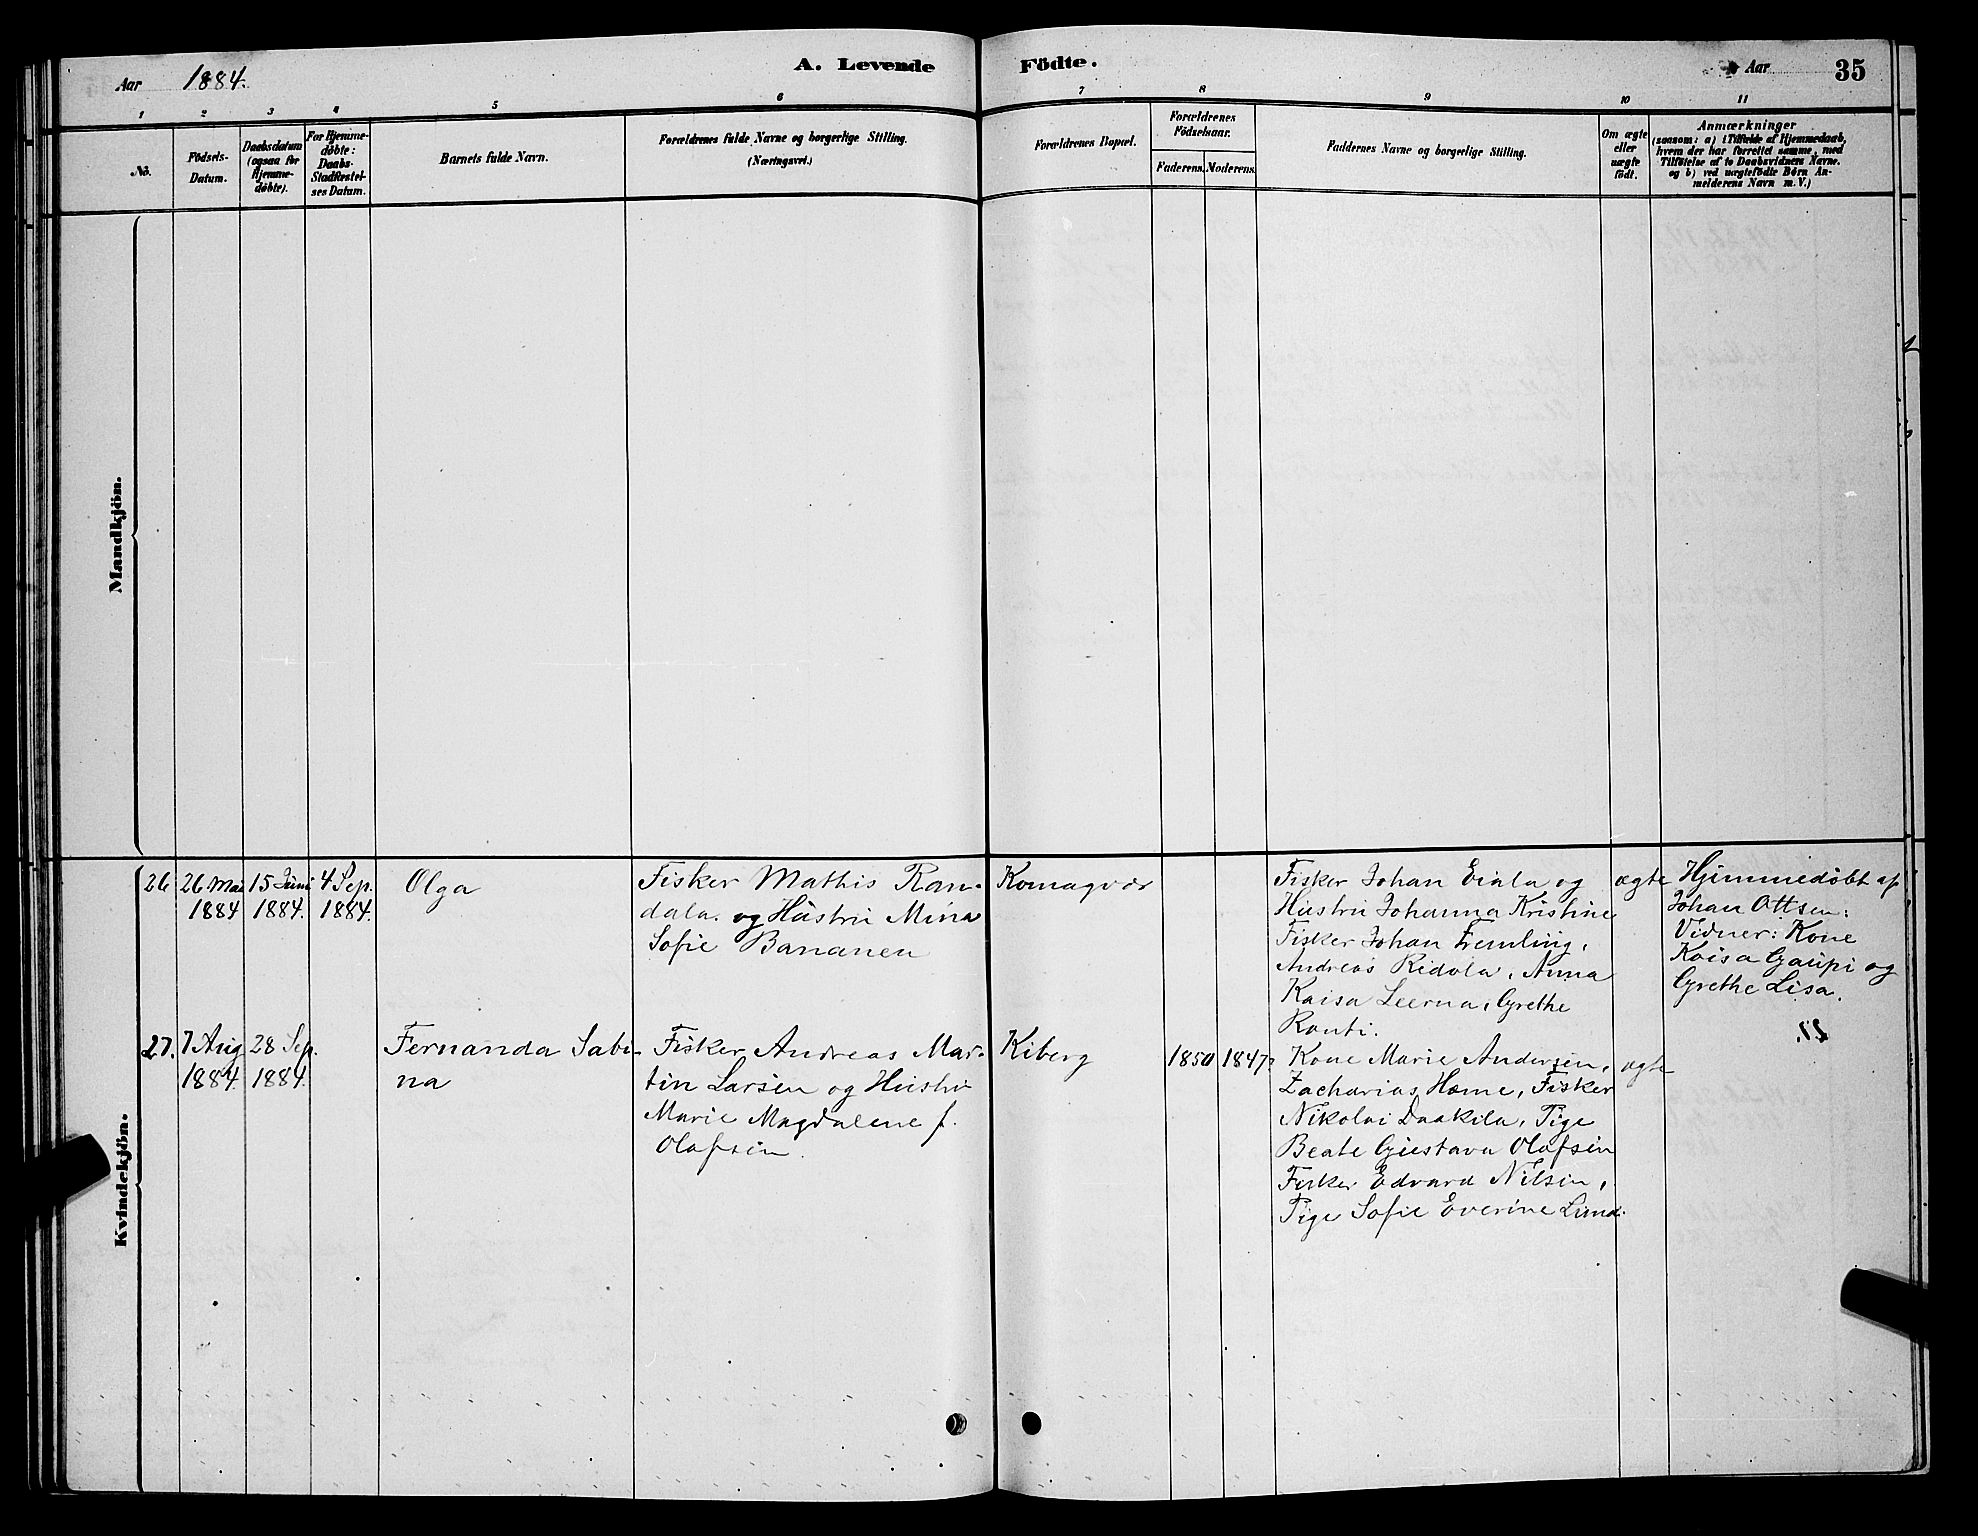 Aar 1884. A. Levende Födte. Aar 35
1 2 3 4 5 6 7 8 9 10 11
No.
Födsels-
Datum.
Daabsdatum
(ogsaa for
Hjemme-
døbte).
For Hjemme-
døbte:
Daabs-
Stadfæstel-
ses Datum.
Barnets fulde Navn.
Forældrenes fulde Navne og borgerlige Stilling.
(Næringsvei.)
Forældrenes Bopæl.
Forældrenes
Födselsaar.
Faderens. Moderens.
Faddernes Navne og borgerlige Stilling.
Om ægte
eller
uægte
födt.
Anmærkninger
(saasom: a) i Tilfælde af Hjemmedaab,
hvem der har forrettet samme, med
Tilföielse af to Daabsvidners Navne.
og b) ved uægtefödte Börn An-
melderens Navn m. V.)
Mandkjön.
Kvindekjön.
26
26 Mai
1884
15 Juni
1884.
4 Sep.
1884.
Olga
Fisker Mathis Ran-
dala. og Hustru Mina
Sofie Bananen
Komagvær
Fisker Johan Eiala og
Hustru Johanna Kristine
Fisker Johan Fremling,
Andreas Ridola, Anna
Kaisa Leerna, Grethe
Ronti.
ægte
Hjemmedöbt af
Johan Ottsen:
Vidner: Kone
Kaisa Gaupi og
Grethe Lisa.
27.
7 Aug
1884.
28 Sep.
1884.
Fernanda Sabi-
na
Fisker Andreas Mar-
tin Larsen og Hustru
Marie Magdalene f.
Olafsen.
Kiberg
1850
1847
Kone Marie Andersen,
Zacharias Home, Fisker
Nikolai Daakila, Pige
Beate Gustava Olafsen
Fisker Edvard Nilsen,
Pige Sofie Everine Lund.
ægte